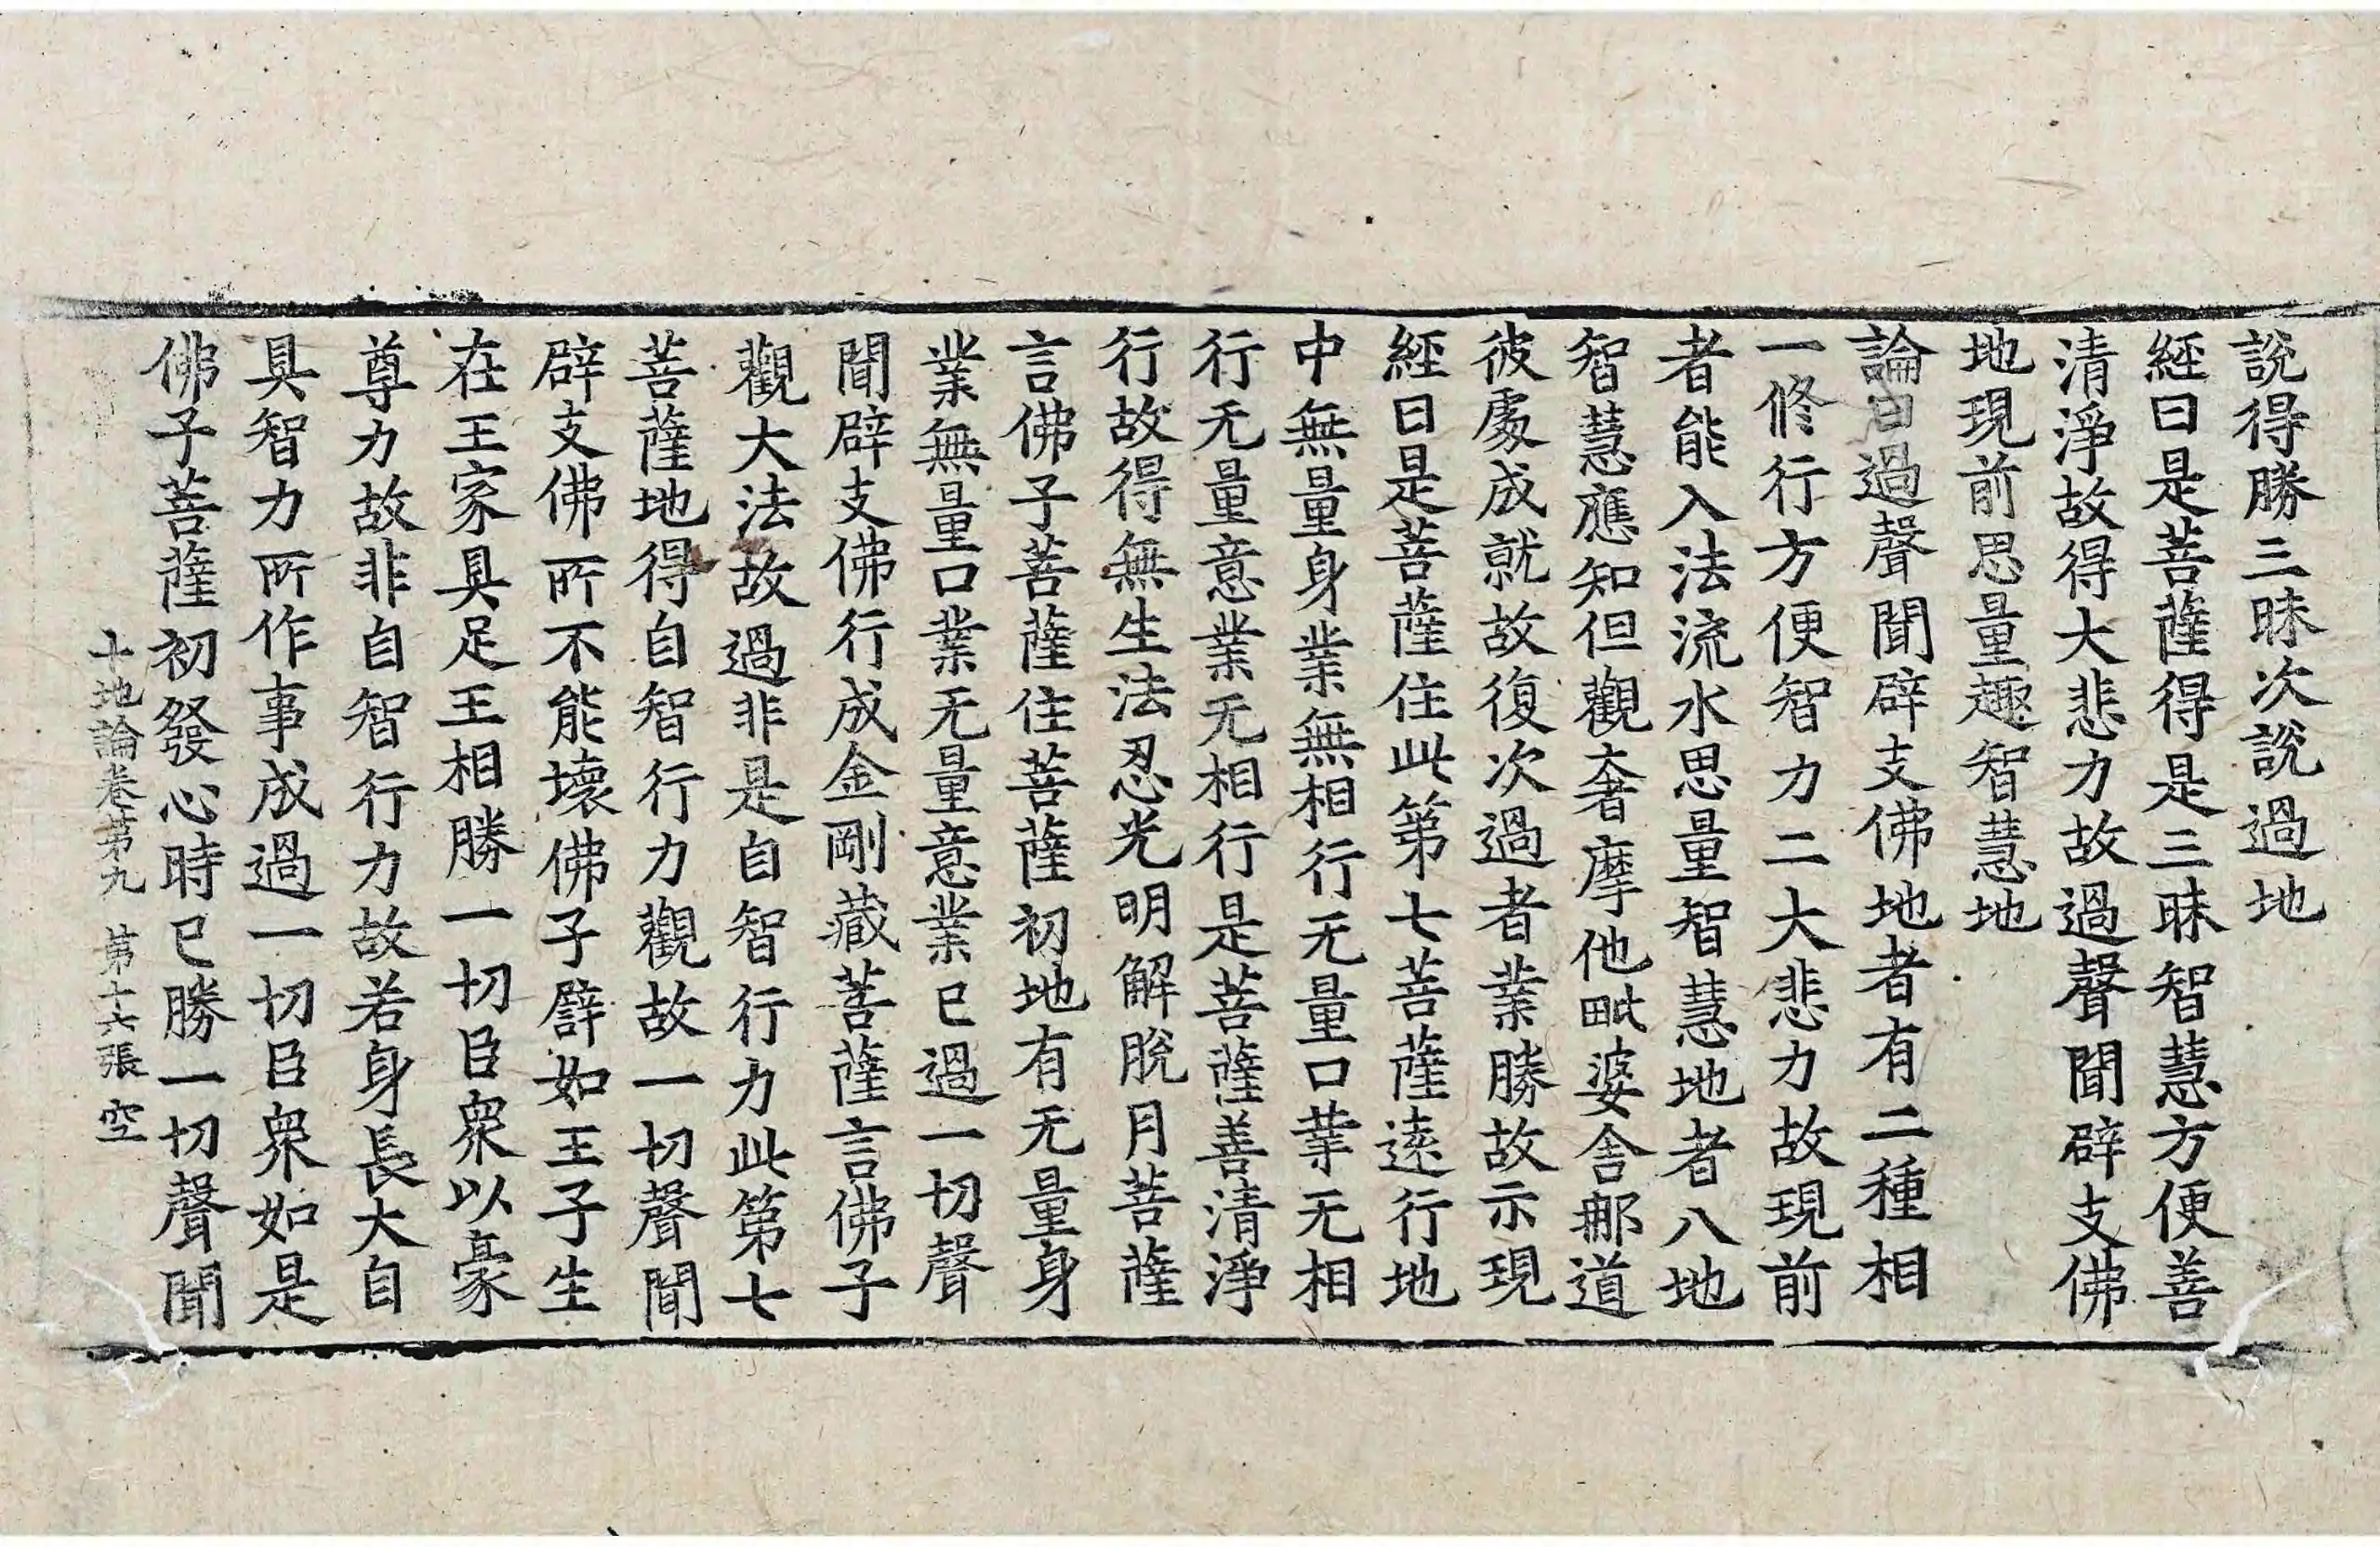 說得勝三昧次說過地
經曰是菩薩得是三昧智慧方便善
清淨故得大悲力故過聲聞辟支佛
地現前思量趣智慧地
論曰過聲聞辟支佛地者有二種相
一修行方便智力二大悲力故現前
者能入法流水思量智慧地者八地
智慧應知但觀奢摩他毗婆舍那道
彼處成就故復次過者業勝故示現
經曰是菩薩住此第七菩薩遠行地
中無量身業無相行无量口業无相
行无量意業无相行是菩薩善清淨
行故得無生法忍光明解脫月菩薩
言佛子菩薩住菩薩初地有无量身
業無量口業无量意業已過一切聲
聞辟支佛行成金剛藏菩薩言佛子
觀大法故過非是自智行力此第七
菩薩地得自智行力觀故一切聲聞
辟支佛所不能壞佛子譬如王子生
在王家具足王相勝一切臣衆以豪
尊力故非自智行力故若身長大自
具智力所作事成過一切臣衆如是
佛子菩薩初發心時已勝一切聲聞
十地論卷第九 第十六張 空